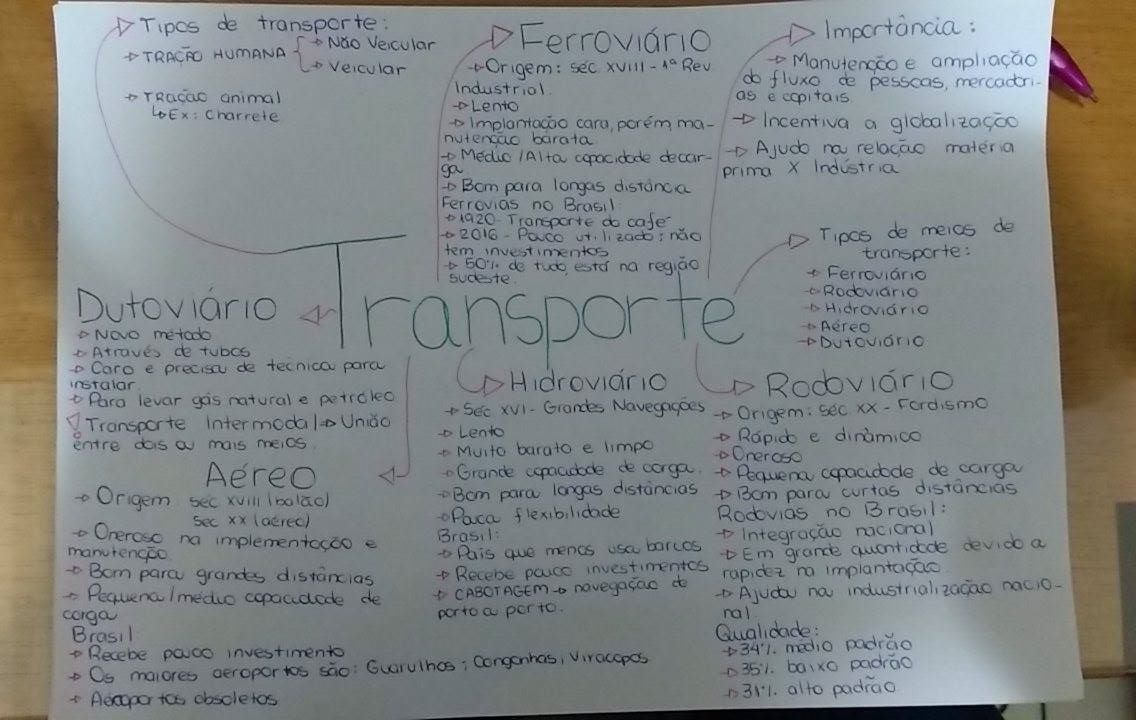 Tipos de transporte:
→ TRAÇÃO HUMANA { → Não Veicular
→ Veicular
→ Tração animal
↳ Ex: Charrete
Ferroviário
→ Origem: séc XVIII - 1ª Rev.
Industrial.
→ Lento
→ Implantação cara, porém, ma-
nutenção barata
→ Médio/Alta capacidade de car-
ga
→ Bom para longas distância
Ferrovias no Brasil:
→ 1920 - Transporte do café
→ 2016 - Pouco utilizado; não
tem investimentos
→ 50% de tudo, está na região
sudeste.
Importância:
→ Manutenção e ampliação
do fluxo de pessoas, mercadori-
as e capitais.
→ Incentiva a globalização
→ Ajuda na relação matéria
prima X Indústria
Tipos de meios de
transporte:
→ Ferroviário
→ Rodoviário
→ Hidroviário
→ Aéreo
→ Dutoviário
Transporte
Dutoviário
→ Novo método
→ Através de tubos
→ Caro e precisa de tecnica para
instalar.
→ Para levar gás natural e petróleo
Transporte Intermodal → União
entre dois ou mais meios.
Aéreo
→ Origem séc XVIII (balão)
séc XX (aéreo)
→ Oneroso na implementação e
manutenção.
→ Bom para grandes distâncias
→ Pequena/médio capacidade de
carga
Brasil:
→ Recebe pouco investimento
→ Os maiores aeroportos são: Guarulhos; Congonhas; Viracopos
→ Aeroportos obsoletos
Hidroviário
→ Séc XVI - Grandes Navegações
→ Lento
→ Muito barato e limpo
→ Grande capacidade de carga.
→ Bom para longas distâncias
→ Pouca flexibilidade
Brasil:
→ País que menos usa barcos
→ Recebe pouco investimentos
→ CABOTAGEM → navegação de
porto a porto.
Rodoviário
→ Origem: séc XX - Fordismo
→ Rápido e dinâmico
→ Oneroso
→ Pequena capacidade de carga
→ Bom para curtas distâncias
Rodovias no Brasil:
→ Integração nacional
→ Em grande quantidade devido a
rapidez na implantação.
→ Ajudou na industrialização nacio-
nal.
Qualidade:
→ 34% médio padrão
→ 35% baixo padrão
→ 31% alto padrão